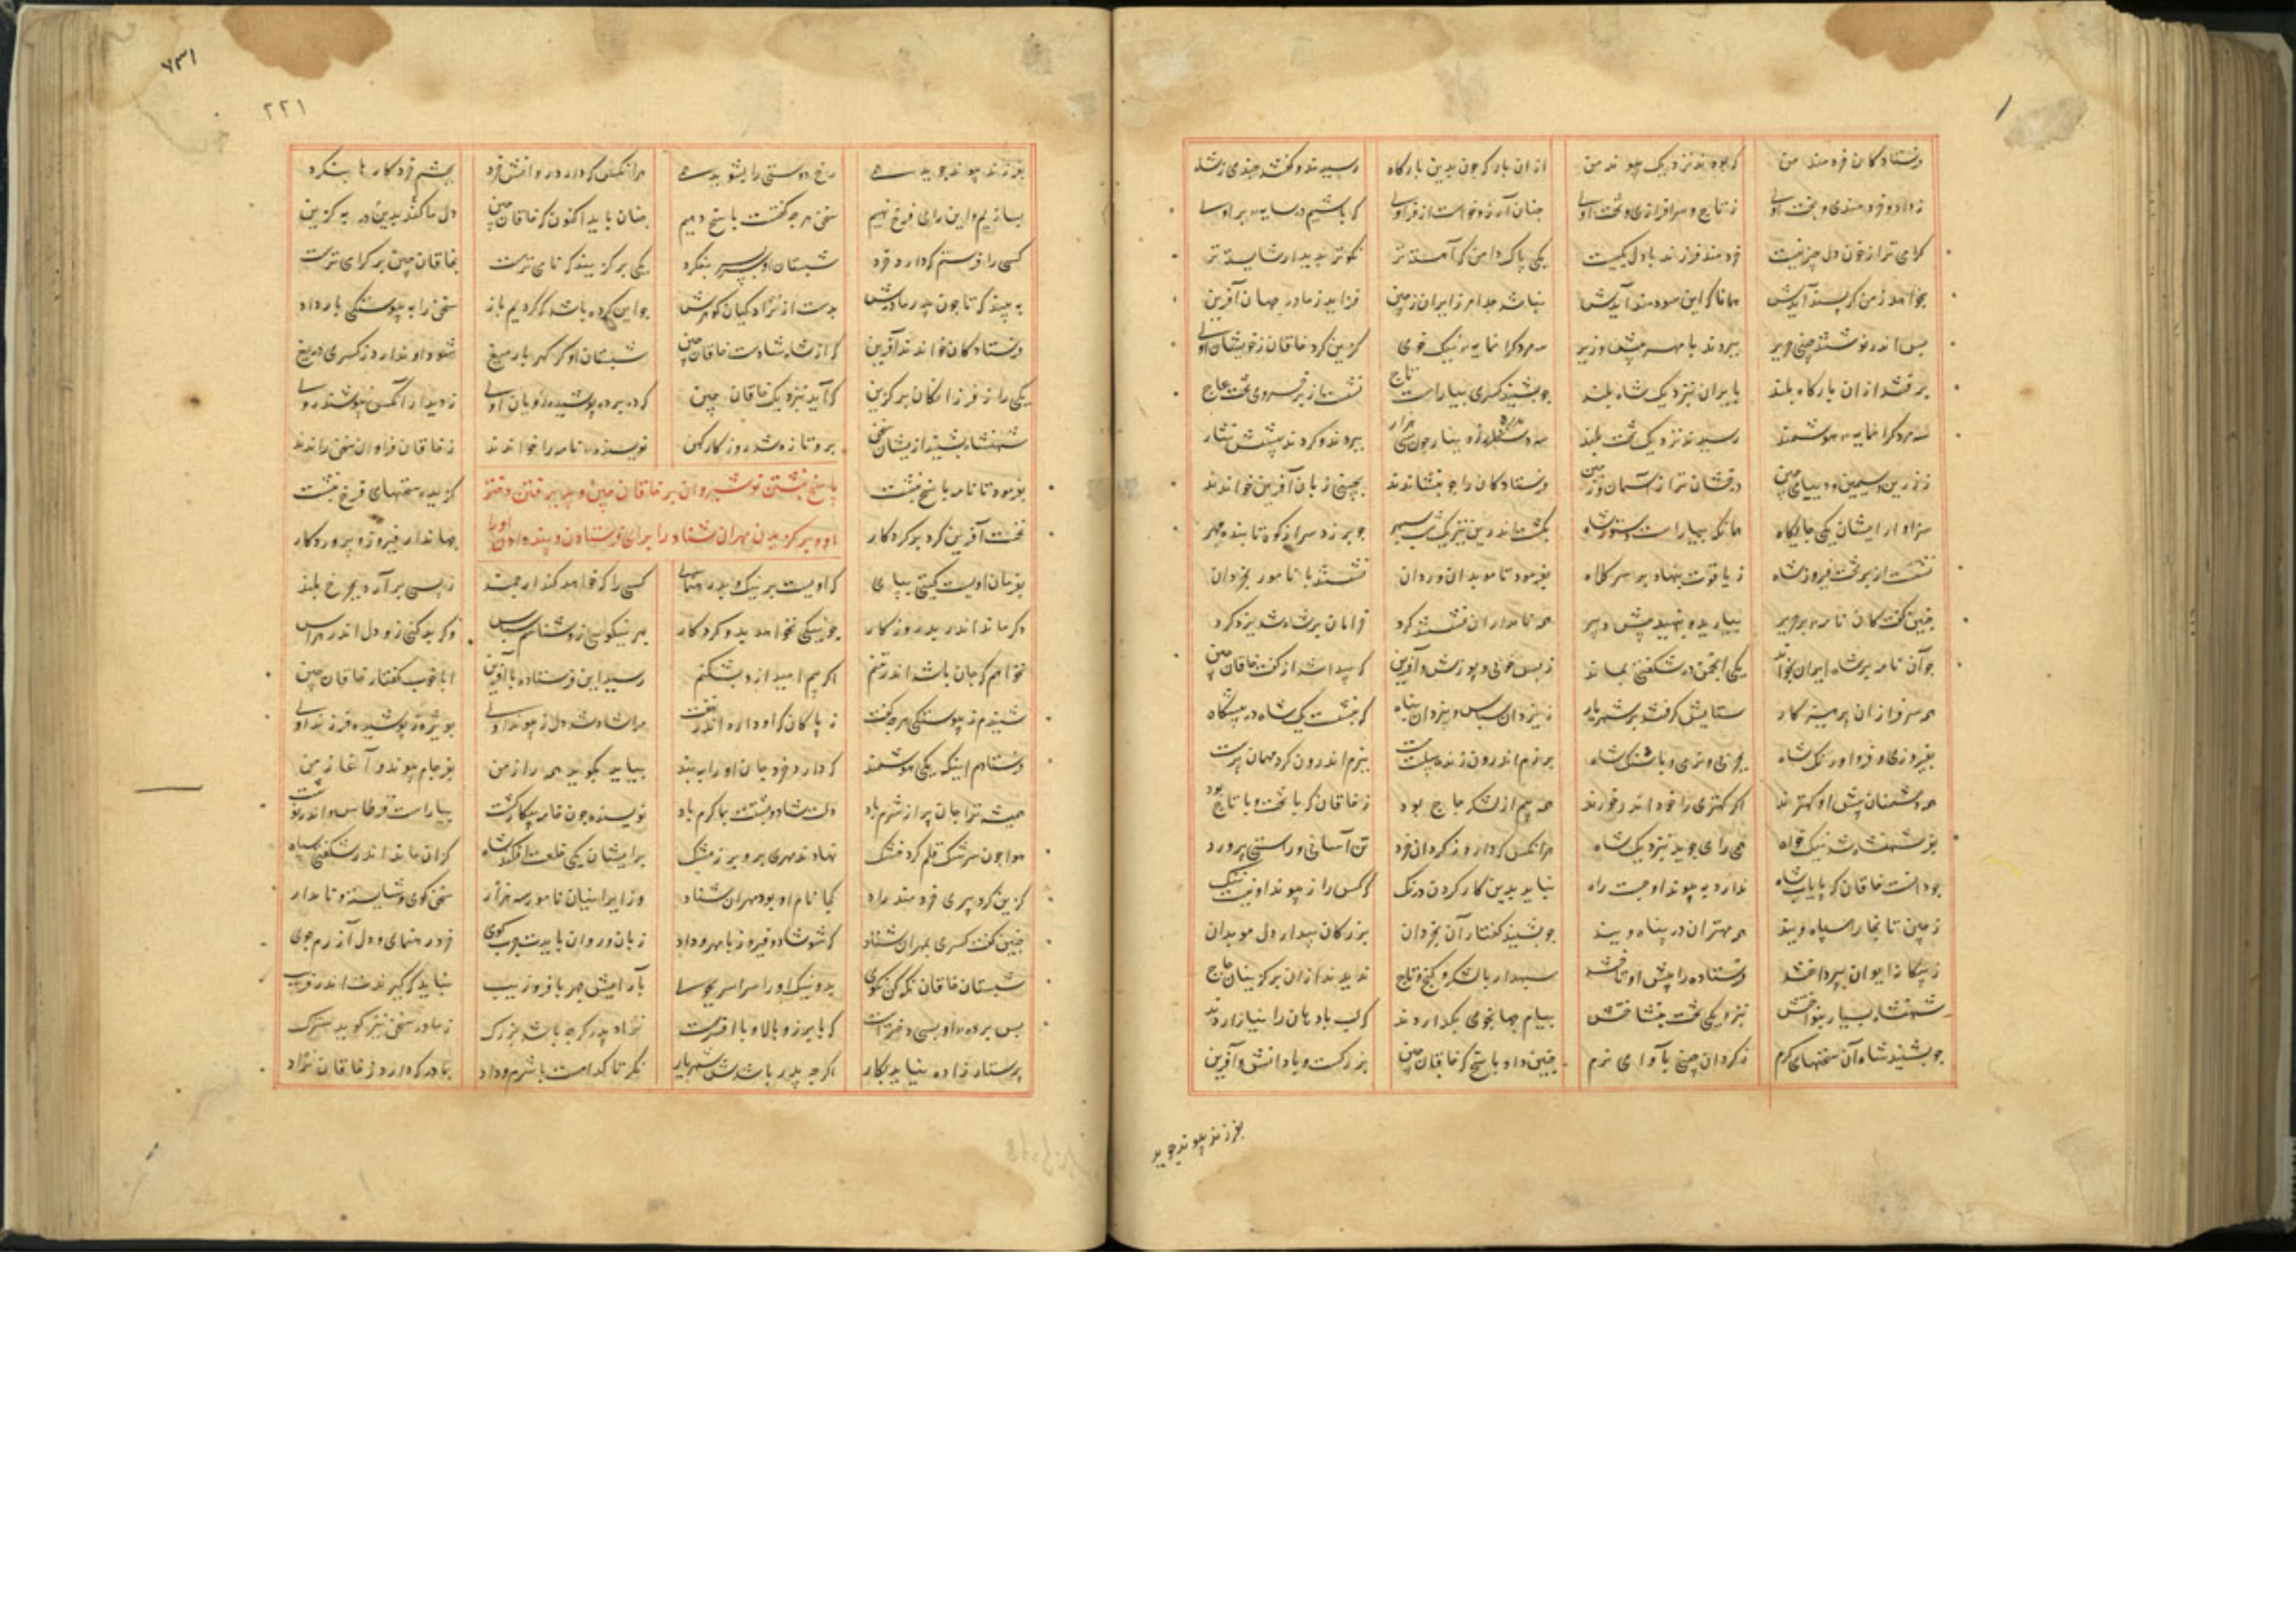 فرستادکان خردمند من که بودند نزدیک پیوند من از ان بارکه چون بدین بارکاه رسیدند و کفتند چندی ز شاه
ز داد و خردمندی و بخت اوی ز تاج و سرافرازی و تخت اوی چنان آرزو خواست از فر اوی که باشیم در سایه پر اوی
کرامی تر از خون دل چیز نیست خردمند فرزند با دل یکیست یکی پاک دامن که آهسته تر نکوتر بدیدار شایسته تر
بخواهد ز من کر پسند آیدش همانا که این سودمند آیدش نباشد جدا مرز ایران ز چین فزاید ز ما در جهان آفرین
پس اندر نوشتند چینی حریر ببردند با مهر پیش وزیر سه مرد کرانمایه و نیک خوی کزین کرد خاقان ز خویشان اوی
برفتند از ان بارکاه بلند به ایران بنزدیک شاه بلند چو بشنید کسری بیاراست تاج نشست از بر خسروی تخت عاج
سه مرد کرانمایه و هوشمند رسیدند نزدیک تخت بلند ببردند و کردند پیشش نثار
ز زرین و سیمین و دیبای چین درفشان تر از آسمان بر زمین فرستادکان را چو بنشاندند بچینی زبان آفرین خواندند
سزاوار ایشان یکی جایکاه همانکه بیاراست دستور شاه چو بر زد سر از کوه تابنده مهر
نشست از بر تخت فیروز شاه ز یاقوت بنهاد بر سر کلاه بفرمود تا موبدان و ردان نشستند با نامور بخردان
چنین کفت کان نامه بر حریر بیارید و بنهید پیش دبیر همه نامداران نشستند کرد
چو آن نامه بر شاه ایران بخواند یکی انجمن در شکفتی بماند ز بس خوبی و پوزش و آفرین که پیدا شد از کفت خاقان چین
همه سرفرازان پرهیزکار ستایش کرفتند بر شهریار ز یزدان سپاس و بیزدان پناه که ننشست یک شاه در پیشکاه
بفیروزی و فر و اورنک شاه بخوبی و نرمی و با سنک شاه برزم اندرون ژنده پیلست مست ببزم اندرون کرد مهمان پرست
همه دشمنان پیش او کهترند اکر کهتری را خود اندر خورند همه بیم از لشکر چاج بود ز خاقان که با تخت و با تاج بود
بفر شهنشاه شد نیک خواه همی رای جوید بنزدیک شاه هر انکس که دارد ز کردان خرد تن آسانی و راستی پرورد
چو دانست خاقان که با یال شاه ندارد به پیوند او جست راه نباید بدین کار کردن درنک که کس را ز پیوند او نیست ننک
ز چین تا بخارا سپاه ویند همه مهتران در پناه ویند چو بشنید کفتار آن بخردان بزرکان بیدار دل موبدان
ز بیکانه ایوان بپرداختند فرستاده را پیش او تاختند سپهدار با لشکر و کنج و تاج
شهنشاه بسیار بنواختش بنزدیکی تخت بنشاختش پیام جهانجوی بکذاردند
چو بشنید شاه آن سخنهای کرم ز کردان چینی بآوای نرم چنین داد پاسخ که خاقان چین بزرکست و با دانش و آفرین
بفرزند پیوند جوید
۲۲۱
بفرزند پیوند جوید همی رخ دوستی را بشوید همی هر انکس که دارد روانش خرد بچشم خرد کارها بنکرد
بسازیم و این رای فرخ نهیم سخن هر چه کفتست پاسخ دهیم چنان باید اکنون که خاقان چین دل ما کند بدین به کزین
کسی را فرستم که دارد خرد شبستان او سربسر بنکرد یکی برکزیند که نامی ترست بخاقان چین بر کرامی ترست
به بیند که تا چون بدر مادرش بدست از نژاد کیان کوهرش چو این کرده باشد که کردیم باز سخن را به پیوستکی بار داد
فرستادکان خواندند آفرین که از شاه شادست خاقان چین
یکی را ز فرزانکان برکزین که آید بنزدیک خاقان چین
شهنشاه بشنید از ایشان سخن بر و تازه شد روزکار کهن نویسنده نامه را خواندند ز خاقان فراوان سخن راندند
بفرمود تا نامه پاسخ نبشت کزیده سخنهای فرخ نبشت
پاسخ نبشتن نوشیروان بر خاقان چین و پذیرفتن دختر
او و برکزیدن مهران ستاد را برای فرستادن و پند دادن او را
نخست آفرین کرد بر کردکار جهاندار فیروز و پروردکار
بفرمان اویست کیتی بپای که اویست بر نیک و بد رهنمای کسی را که خواهد کند ارجمند ز پستی برآرد بچرخ بلند
دکر ماند اندر بد روزکار چو نیکی نخواهد بدو کردکار بهر نیکوی زو شناسم سپاس وکر بد کنم زو دل اندر هراس
نخواهم که جان باشد اندر تنم اکر بیم و امید ازو بشکنم رسید این فرستاده با آفرین ابا خوب کفتار خاقان چین
شنیدم ز پیوستکی هر چه کفت ز پاکان که او دارد اندر نهفت مرا شاد شد دل ز پیوند اوی بویژه ز پوشیده فرزند اوی
فرستادم اینک یکی هوشمند که دارد خرد جان او را ببند بیاید بکوید همه راز من بفرجام پیوند و آغاز من
همیشه ترا جان پر از شرم باد دلت شاد و پشتت بما کرم باد نویسنده چون خامه بیکار کشت بیاراست قرطاس و اندر نوشت
هوا چون سرشک قلم کرد خشک نهادند مهری برو بر ز مشک بر ایشان یکی خلعت افکند شاه کز ان ماند اندر شکفتی سپاه
کزین کرد پیری خردمند راد کجا نام او بود مهران ستاد وز ایرانیان نامور سه هزار سخن کوی و شایسته و نامدار
چنین کفت کسری بمهران ستاد که شو شاد و فیروز با مهر و داد زبان و روان بایدت چرب کوی خرد رهنمای و دل آزرم جوی
شبستان خاقان نکه کن نکوی بد و نیک او را سراسر بجوی بآرایش چهر با فر و زیب نباید که کیرندت اندر فریب
پس پرده او بسی دخترست که با برز و بالا و با افسرست نژاد پدر کرچه باشد بزرک
پرستار زاده نیاید بکار اکرچه پدر باشدش شهریار نکر تا کدامست با شرم و داد بمادر که دارد ز خاقان نژاد